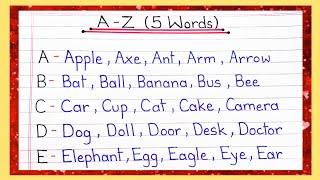 A-Z (5 Words)
A - Apple, Axe, Ant, Arm, Arrow
B - Bat, Ball, Banana, Bus, Bee
C - Car, Cup, Cat, Cake, Camera
D - Dog, Doll, Door, Desk, Doctor
E - Elephant, Egg, Eagle, Eye, Ear